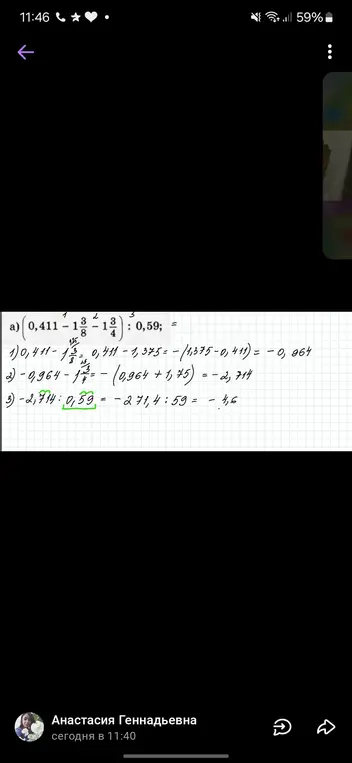 11:46 59%
а) (0,411 − 1 3/8 − 1 3/4) : 0,59; =
1) 0,411 − 1 3/8 = 0,411 − 1,375 = −(1,375 − 0,411) = −0,964
2) −0,964 − 1 3/4 = −(0,964 + 1,75) = −2,714
3) −2,714 : 0,59 = −271,4 : 59 = −4,6
Анастасия Геннадьевна
сегодня в 11:40